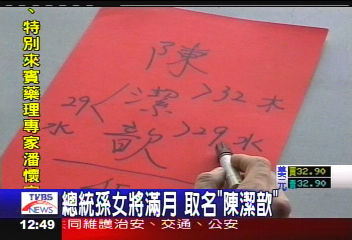 、特別來賓藥理專家潘懷
陳
潔 >32 木
29<
水
歆 >29 水
美元
買32.90
賣32.90
TVBS
NEWS
總統孫女將滿月 取名"陳潔歆"
12:49
共同維護治安、交通、公安